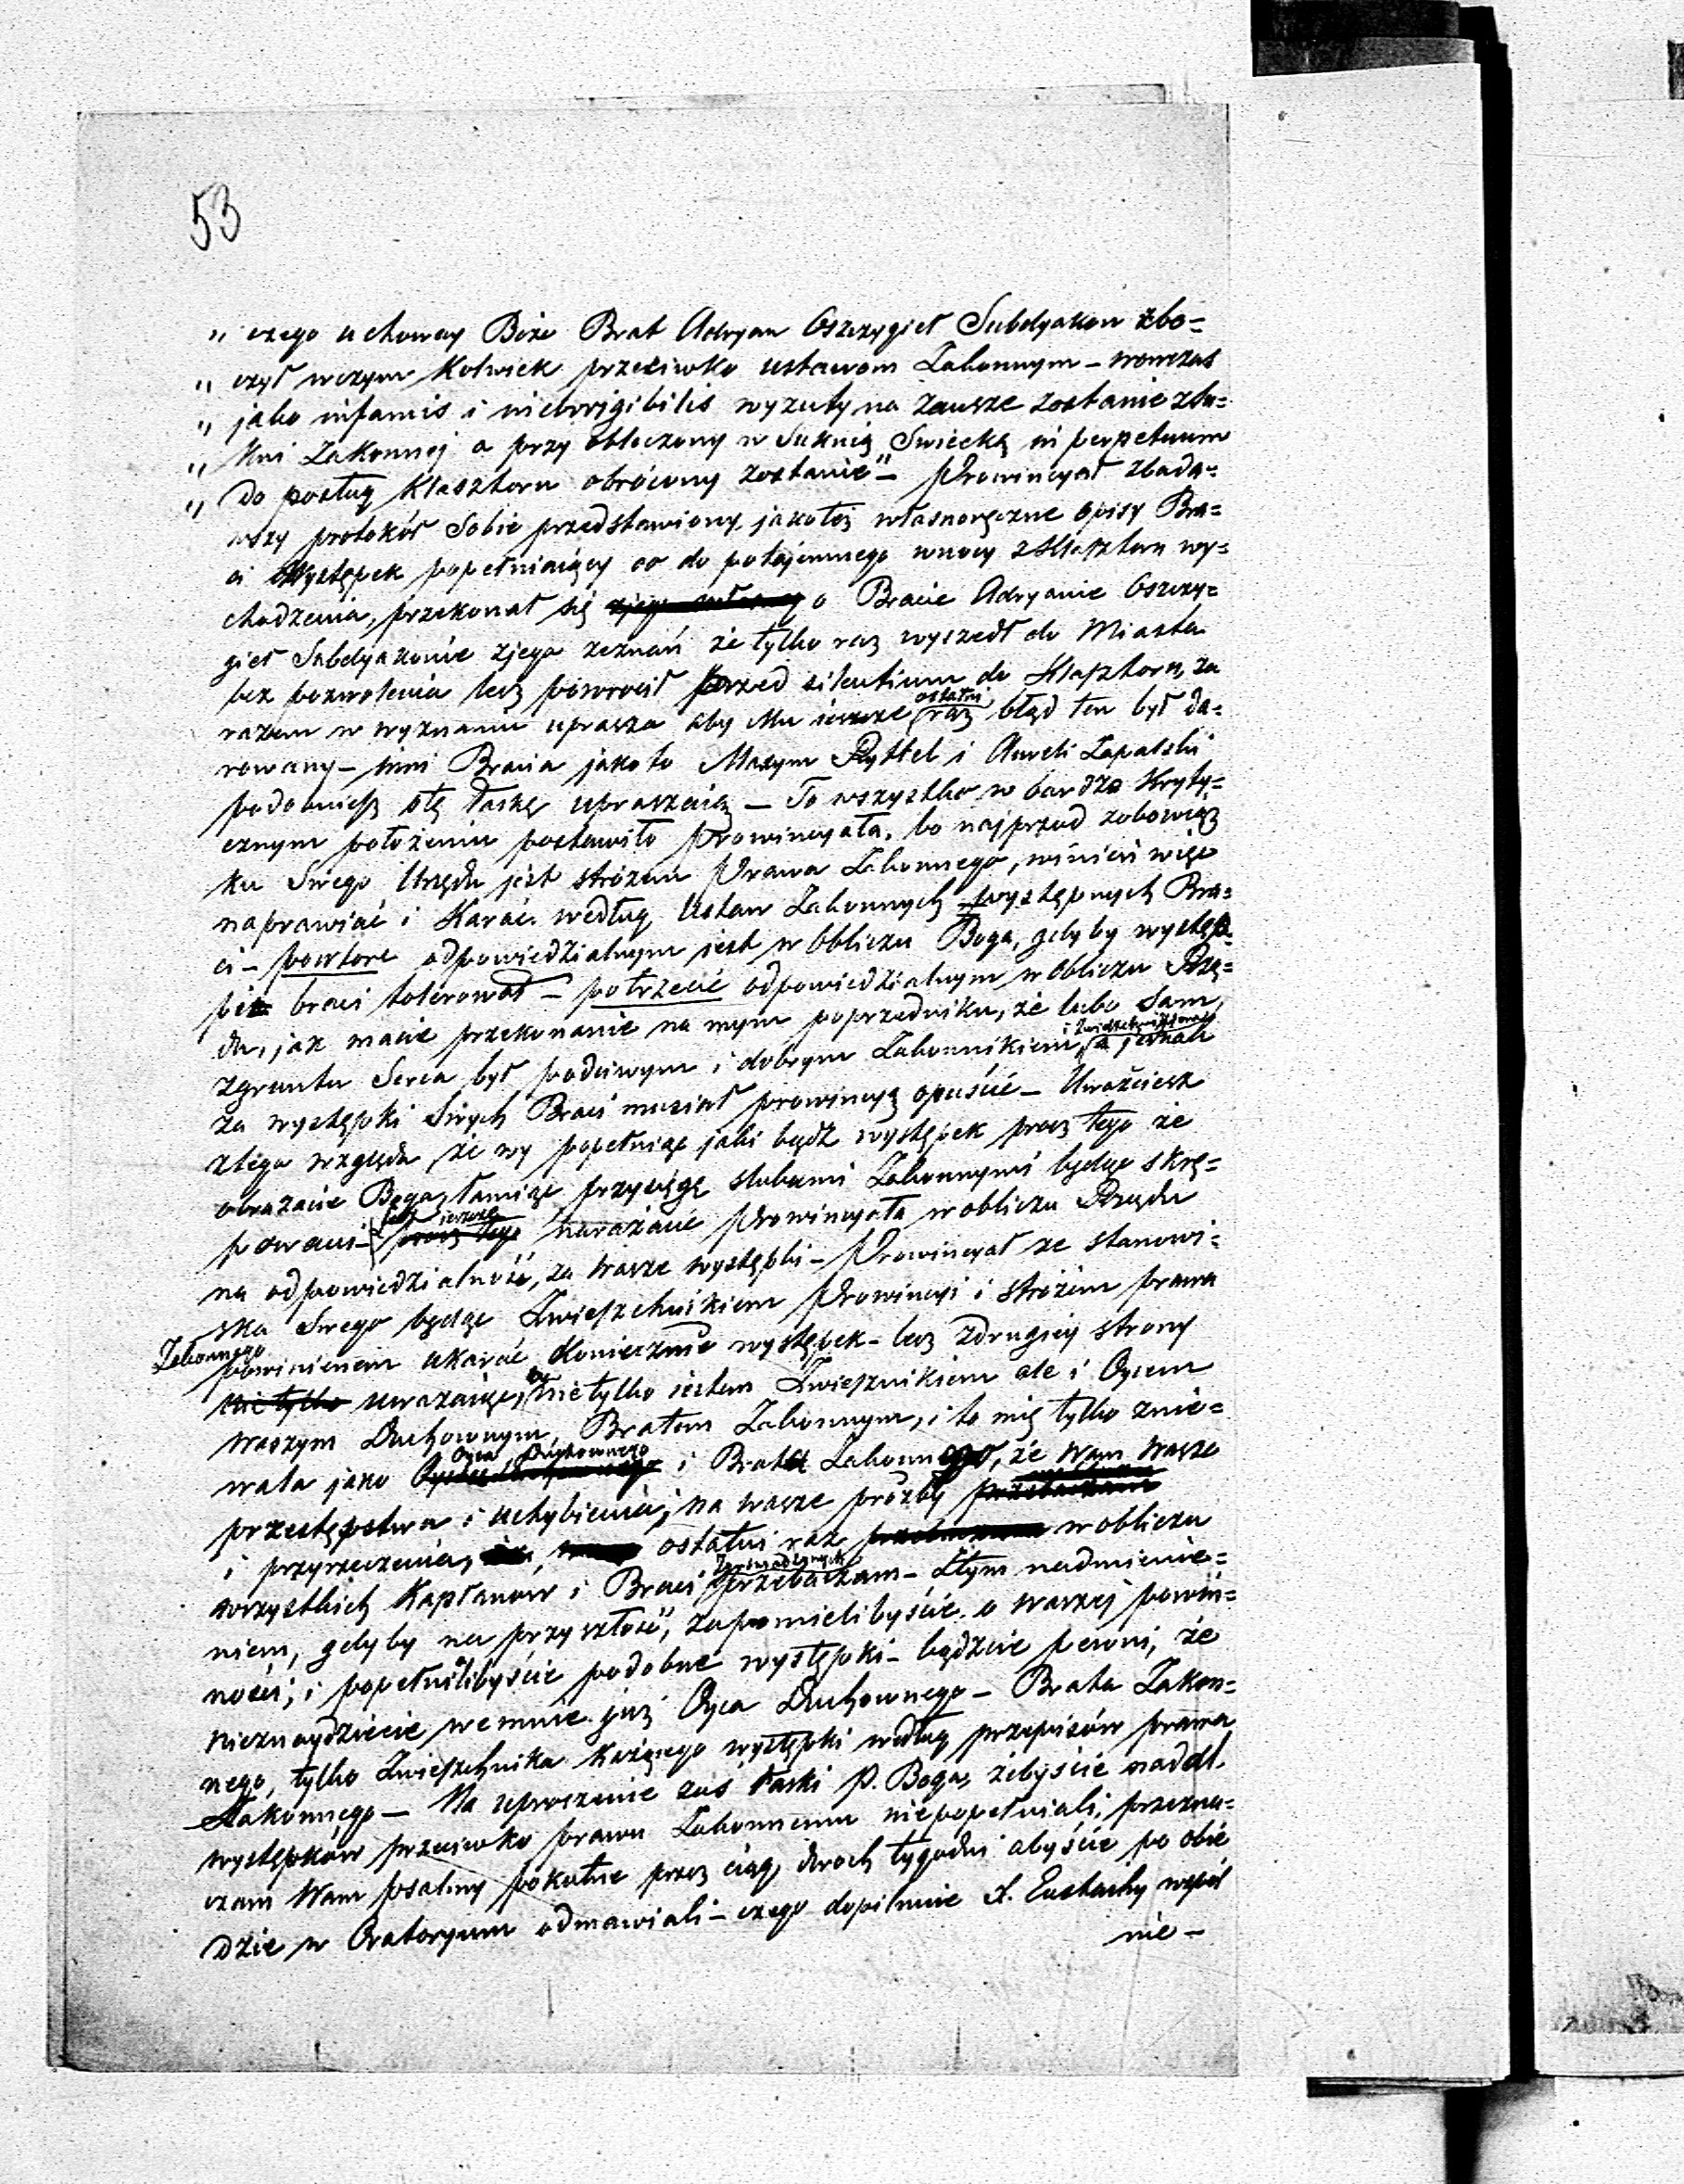 53
" czego uchoway Boże Brat Adryan Oszczygieł Subdyakon zbo=
" czył wczym kolwiek przeciwko ustawom Zakonnym – wowczas
" jako infamis i incorrigibilis wyzuty na zawsze zostanie zSu=
" kni Zakonnej a przy obloczony w Suknią Swiecką in perpetuum
" Do posług klasztoru obrócony zostanie" – Prowincyał zbada=
wszy protokół Sobie przedstawiony, jakoteż własnoręczne opisy Bra=
ci Występek popełniaiący co do potajemnego wnocy z Klasztoru wy=
chodzenia, przekonał się o Bracie Adryanie Oszczy=
gieł Subdyakonie zjego zeznań że tylko raz wyszedł do Miasta
bez pozwolenia lecz powrocił przed silentium do Klasztoru, za
razem w wyznaniu uprasza aby Mu ieszcze ostatni raz błąd ten był da=
rowany – inni Bracia jako to Maxym Ryttel i Aureli Łapatski
podobnież otę łaskę upraszaią – To wszystko w bardzo kryty=
cznym położeniu postawiło Prowincyała, bo najprzod zobowiąz
ku Swego Urzędu jest stróżem Prawa Zakonnego, winien więc
naprawiać i Karać według Ustaw Zakonnych występnych Bra=
ci – powtore odpowiedzialnym jest w Obliczu Boga, gdyby występ
pek braci tolerował – potrzecie odpowiedzialnym w obliczu Rzą=
du, jak macie przekonanie na mym poprzedniku, że lubo Sam
zgruntu Serca był poczciwym i dobrym Zakonnikiem, i Zwierzchnikiem jednak
za występki Swych Braci musiał prowincyą opuścić – Uważcież
ztego względu, że wy popełniąc jaki bądź występek procz tego że
obrazacie Boga, łamiąc przysięgę slubami Zakonnymi będąc skrę=
powani – ieszcze procz tego narażacie Prowincyała w obliczu Rządu
na odpowiedzialność, za wasze występki – Prowincyał ze stanowi=
ska Swego będąc Zwierzchnikiem Prowincyi i stróżem prawa
Zakonnego powinienem ukarać koniecznie występek – lecz zdrugiey strony
nie tylko uważaiąc, że nietylko iestem Zwierznikiem ale i Oycem
waszym Duchownym, Bratem Zakonnym, i to mię tylko znie=
wala jako Oyca Duchownego i Brata Zakonnego, że Wam Wasze
przestępstwa i uchybienia, na wasze prożby przebaczam
i przyrzeczenia, ostatni raz w obliczu
wszystkich Kapłanów i Braci Zgromadzonych przebaczam – Ztym nadmienie=
niem, gdyby na przyszłość, zapomielibyście o waszej powin=
ności, i popełnilibyście podobne występki – będzcie pewni, że
nieznaydziecie wemnie już Oyca Duchownego – Brata Zakon=
nego, tylko Zwierzchnika każącego występki według przepisów prawa
Zakonnego – Na uproszenie zaś łaski P. Boga, żebyście nadal
występków przeciwko prawu Zakonnemu niepopełniali, przezna=
czam Wam psalmy pokutne przez ciąg dwoch tygodni abyście po obie
dzie w Oratoryum odmawiali – czego dopilnuie X. Eustachy wspól
nie –